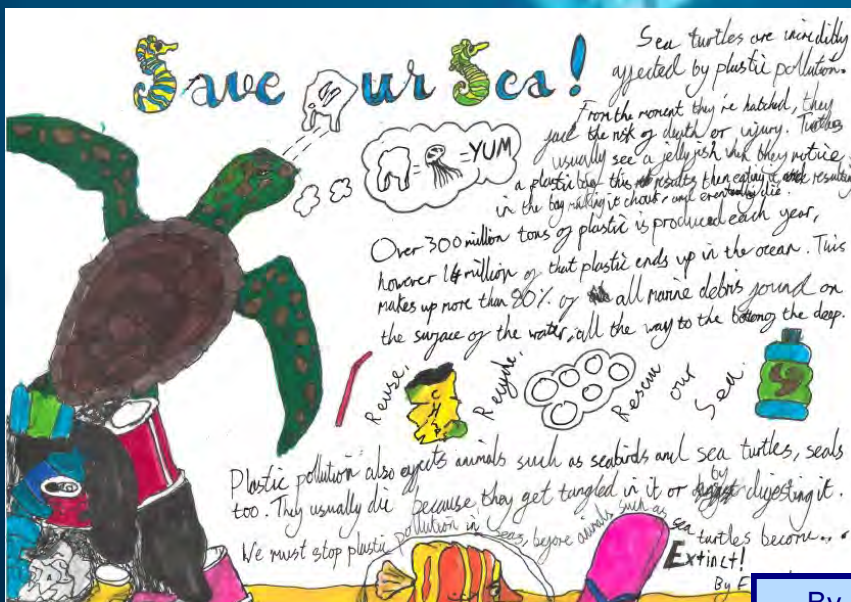 Save Our Sea!
Sea turtles are incredibly
affected by plastic pollution.
From the moment they're hatched, they
face the risk of death or injury. Turtles
usually see a jellyfish when they notice
a plastic bag this results then eating it resulting
in the bag making it choke, and eventually die.
= = YUM
Over 300 million tons of plastic is produced each year,
however 14 million of that plastic ends up in the ocean. This
makes up more than 80% of all marine debris found on
the surface of the water, all the way to the bottom of the deep.
Reuse, Recycle, Rescue our Sea.
CHIP
Plastic pollution also effects animals such as seabirds and sea turtles, seals
too. They usually die because they get tangled in it or by digesting it.
We must stop plastic pollution in seas, before animals such as sea turtles become...
Extinct!
By E
By